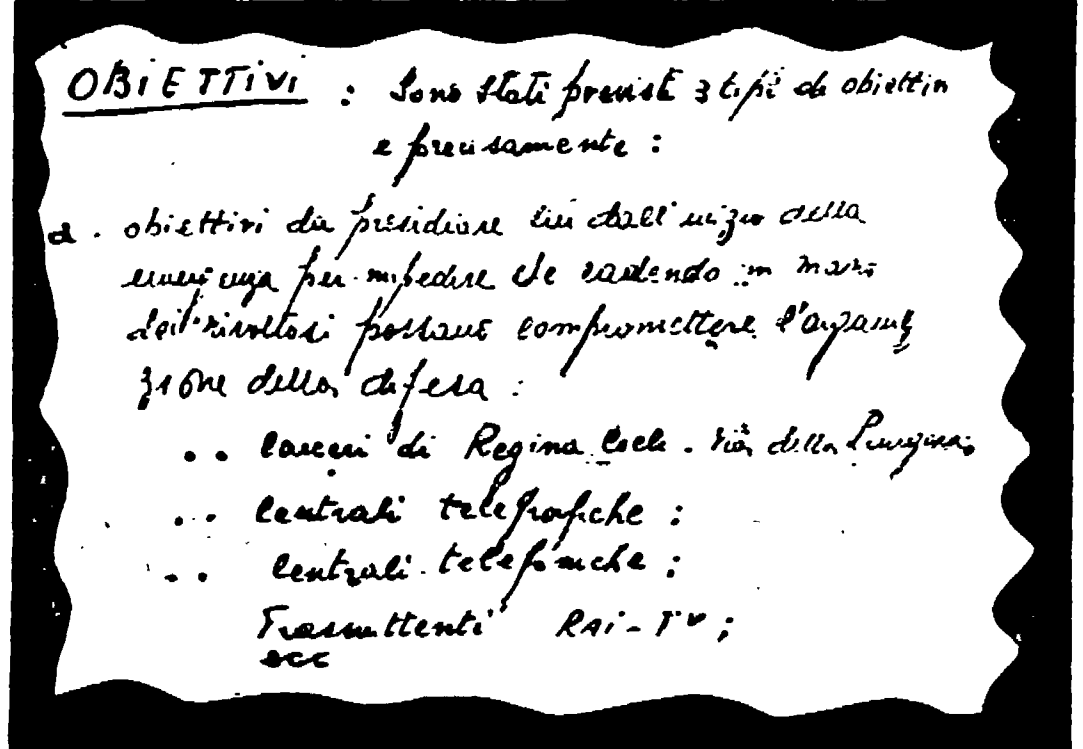 OBiETTivi : Sono stati previsti 3 tipi di obiettivi
e precisamente :
a . obiettivi da presidiare sin dall'inizio della
emergenza per impedire che cadendo in mano
dei rivoltosi possano compromettere l'organiz
zione della difesa :
.. carceri di Regina Coeli . Via della Lungara;
... Centrali telegrafiche :
.. Centrali telefoniche ;
Trasmittenti RAi-TV ;
ecc